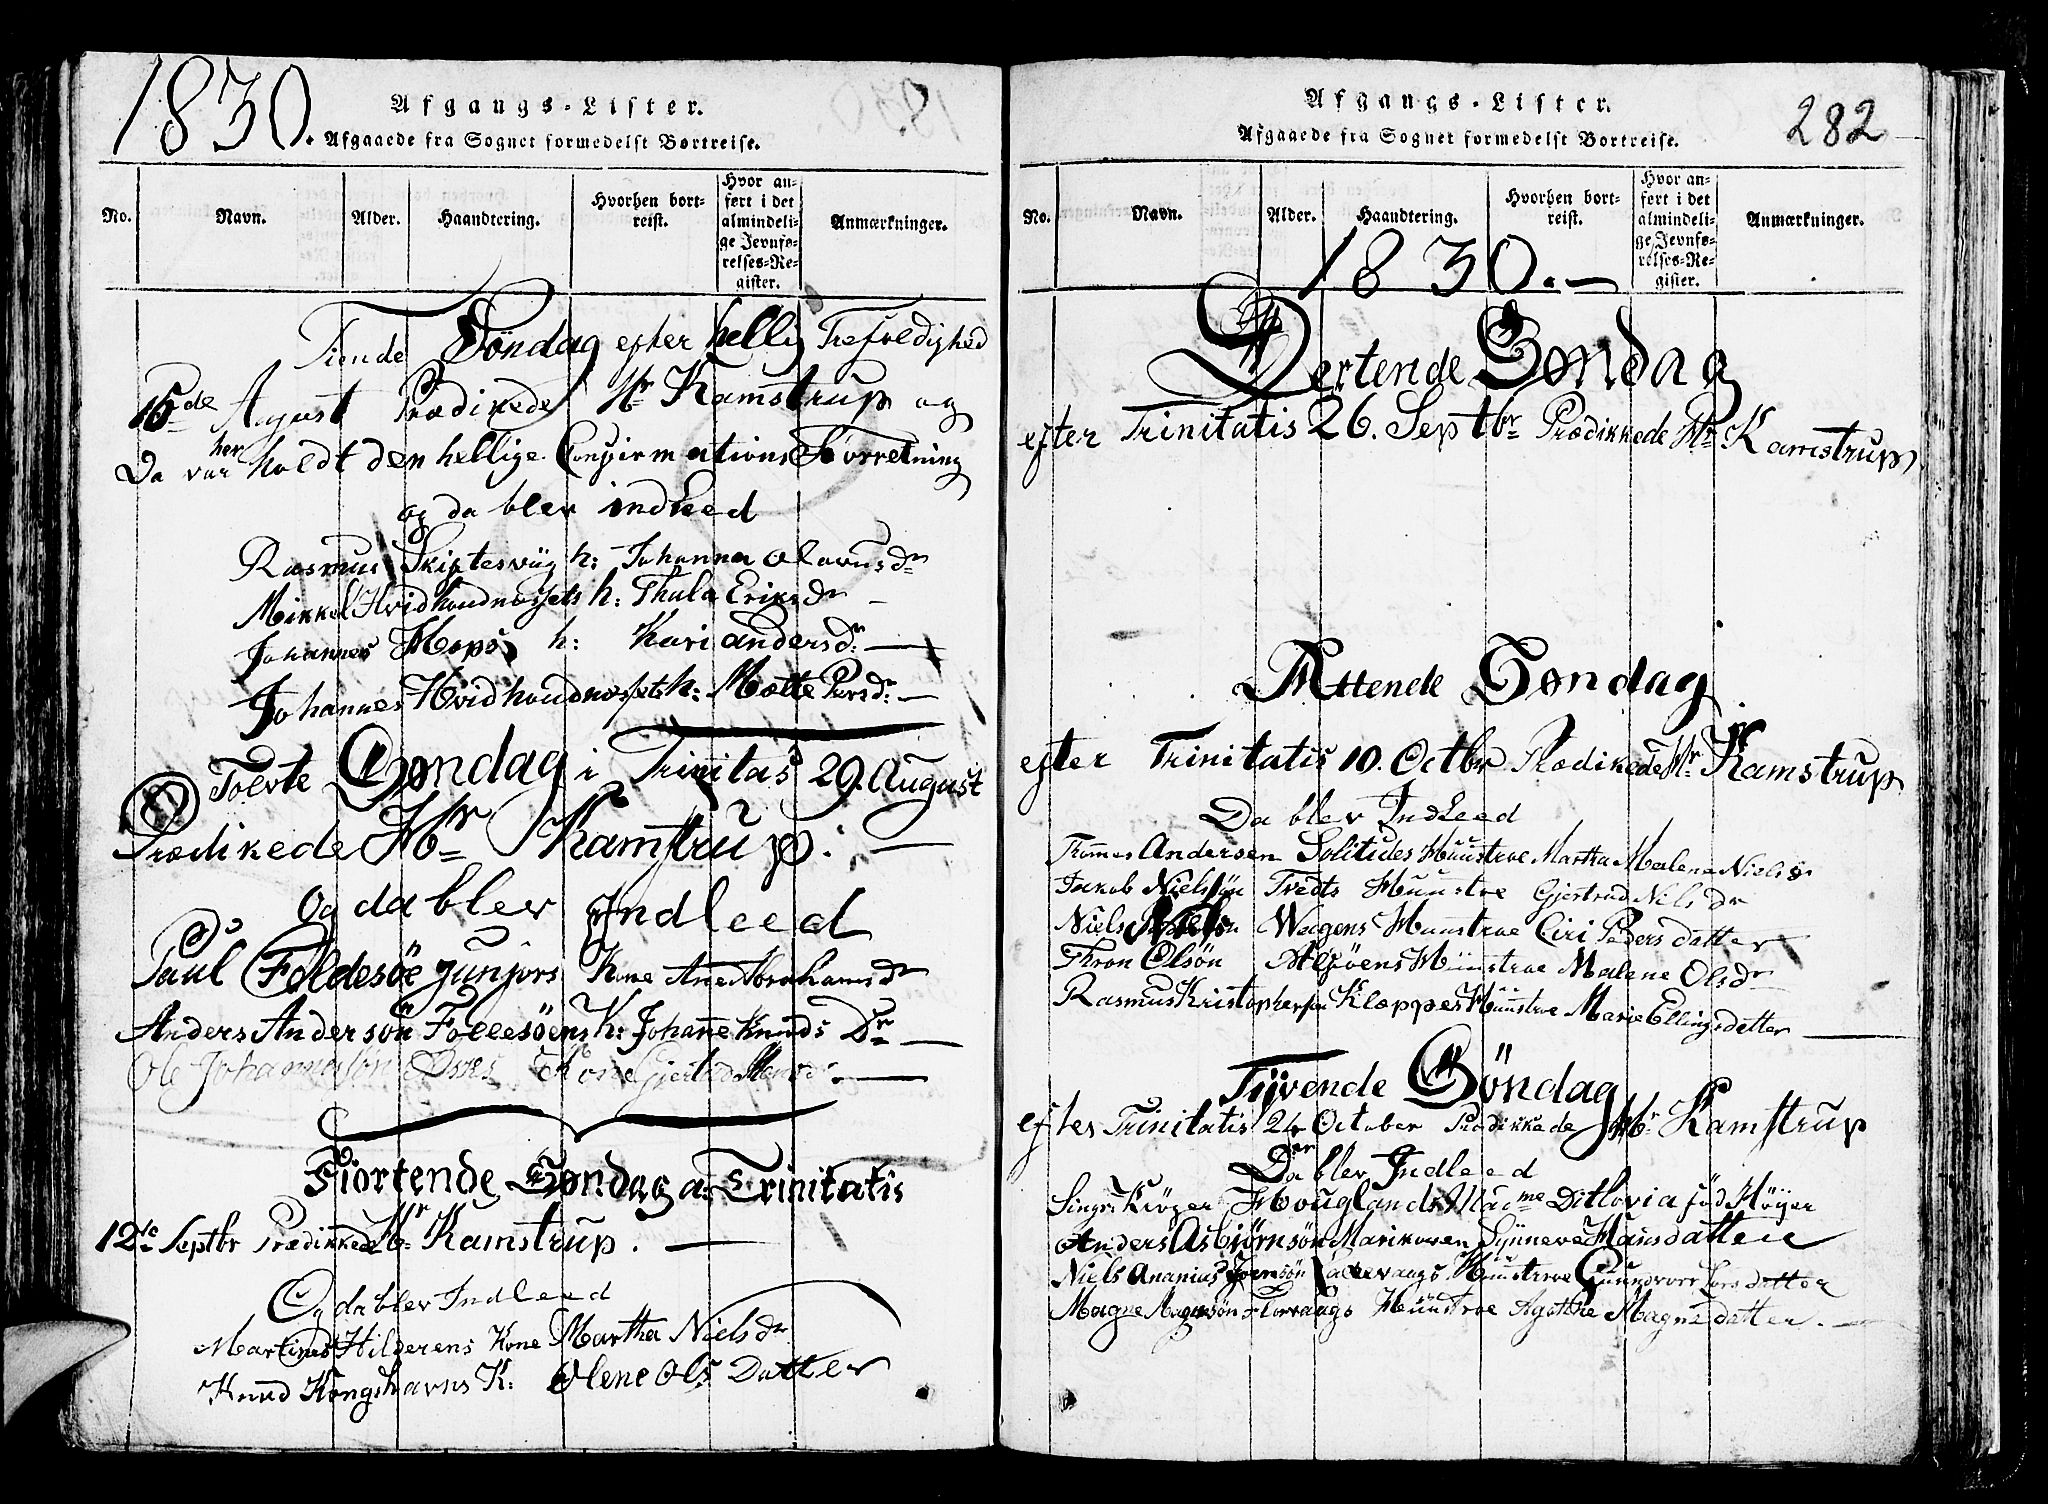 1830.
Afgangs-Lister.
Afgaaede fra Sognet formedelst Bortreise.
No. Navn. Alder. Haandtering. Hvorhen bortreist. Hvor anført i det almindelige Jevnførelses-Register. Anmærkninger.
Tiende Söndag efter hellig Trefoldighed
15de August Prædikede Hr Kamstrup og
Da var her holdt den hellige Confirmations Forretning
og da blev indLeed
Rasmus h: Johanna Olavusdr
Mikkel Hvidhoudnæssets h: Thula Eriksdr
Johannes Hops h: Kari andersdr
Johannes Hvidhoudnæssets h: Mætte Persdr
Tolvte Søndag i Trinitas 29. August
Prædikede Hr Kamstrup.
Og da blev Indleed
Paul Foldesøe junjors Kone Ane Abrahamsdr
Anders Andersön Follesöens K: Johanne Knuds Dr
Ole Johannesön Kone
Fiortende Søndag a: Trinitatis
12te Septbr Prædikkede Hr Kamstrup.
Og da blev Indleed
Martines Hilderens Kone Martha Nielsdr
Knud Kongshavns K: Olene Ols Datter
Afgangs-Lister.
282
Afgaaede fra Sognet formedelst Bortreise.
No. Navn. Alder. Haandtering. Hvorhen bortreist. Hvor anført i det almindelige Jevnførelses-Register. Anmærkninger.
1830.
Søndag
efter Trinitatis 26. Septbr Prædikkede Hr Kamstrup
Attende Søndag
efter Trinitatis 10. Octbr Prædikede Hr Kamstrup
Da blev IndLeed
Andersen Solitudes Huustroe Martha Malene
Jakob Nielsön Tvedts Huustroe Gjertrud Nilsdr
Niels Wagens Huustroe Ciri Peders datter
Thron Olsön Huustroe Malene Olsdr
Rasmus Kristophersen Kleppes Huustroe Marie Ellingsdatter
Tyvende Søndag
efter Trinitatis 24 October Prædikkede Hr Kamstrup
Der blev Indleed
Houglands Madme Ditlovia föd Höyer
Anders Asbjørnsön Synneve Hansdatter
Niels Ananias Huustroe datter
Magne Magnesön Huustroe Agathe Magnedatter.